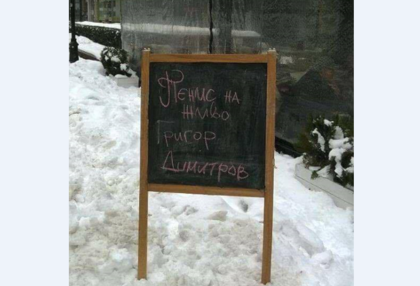 Пенис на
живо
Григор
Димитров